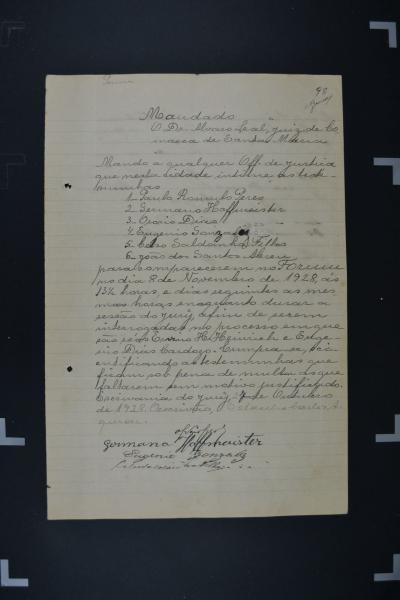 98
Mandado
O Dr. Alvaro Leal, juiz de Co
marca de Santa Maria
Mando a qualquer Off. de justiça
que nesta cidade intime as teste-
munhas
1 Paulo Romulo Peres
2 Germano Hoffmeister
3 Osorio Dias
4 Eugenio Gonzales
5 Celso Saldanha Filho
6 João dos Santos
para comparecerem no Forum
no dia 8 de Novembro de 1928, ás
13½ horas e dias seguintes as mes
mas horas enquanto durar a
sessão do jury, afim de serem
interrogadas no processo em que
são réos H. Heinrich e Euge-
nio Dias Cardozo. Cumpra-se, sci
entificando as testemunhas que
ficam sob pena de multa as que
faltarem sem motivo justificado.
Escrivania do jury, 7 de Outubro
de 1928.
Germano Hoffmeister
Eugenio Gonzales